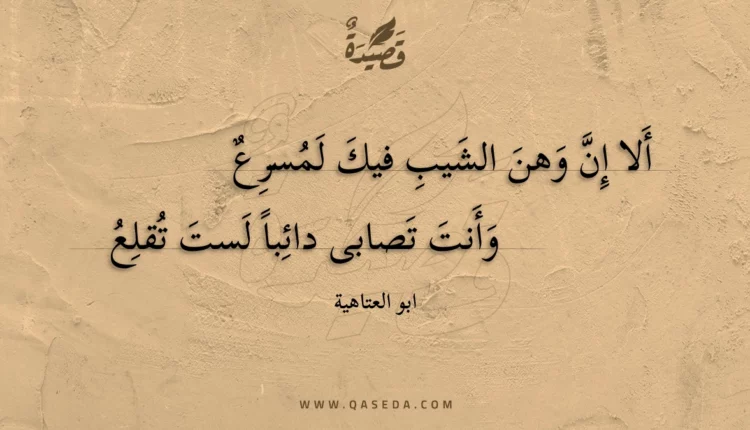 قَصِيدَةٌ
أَلا إِنَّ وَهنَ الشَيبِ فيكَ لَمُسرِعٌ
وَأَنتَ تَصابى دائِباً لَستَ تُقلِعُ
ابو العتاهية
WWW.QASEDA.COM